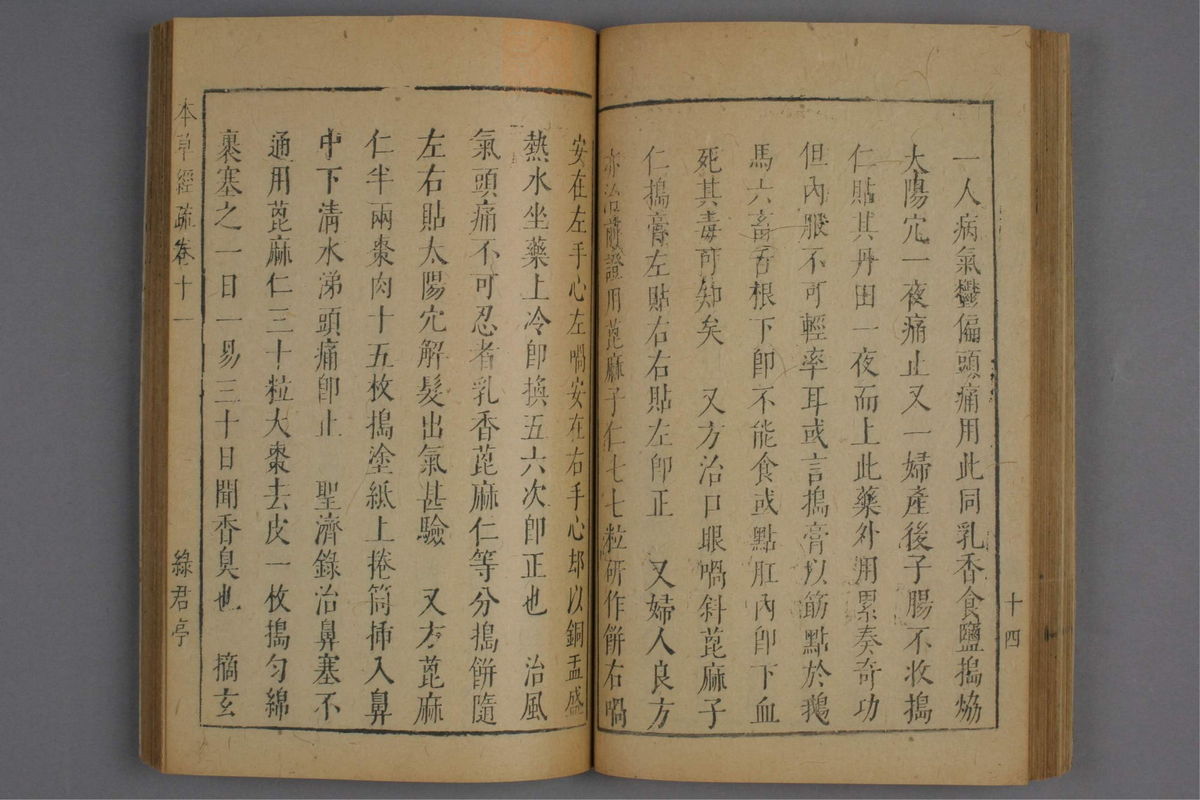 一人病氣鬱偏頭痛用此同乳香食鹽搗㷔
大陽穴一夜痛止又一婦產後子腸不收搗
仁貼其丹田一夜而上此藥外用累奏奇功
但內服不可輕率耳或言搗膏以筯點於鵝
馬六畜舌根下卽不能食或點肛內卽下血
死其毒可知矣　又方治口眼喎斜蓖麻子
仁搗膏左貼右右貼左卽正　又婦人良方
用蓖麻子仁七七粒研作餅右喎
安在左手心左喎安在右手心却以銅盂盛
熱水坐藥上冷卽換五六次卽正也　治風
氣頭痛不可忍者乳香蓖麻仁等分搗餅隨
左右貼太陽穴解髮出氣甚驗　又方蓖麻
仁半兩棗肉十五枚搗塗紙上捲筒揷入鼻
中下清水涕頭痛卽止　聖濟錄治鼻塞不
通用蓖麻仁三十粒大棗去皮一枚搗勻綿
裹塞之一日一易三十日聞香臭也　摘玄
本草經疏卷十一
綠君亭
十四